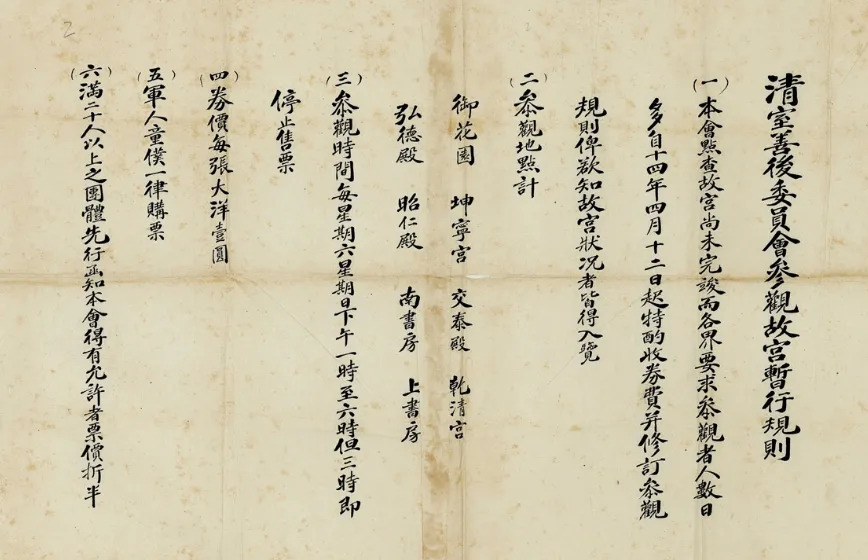 清室善後委員會參觀故宮暫行規則
(一)本會點查故宮尚未完竣而各界要求參觀者人數日
多自十四年四月十二日起特酌收券費并修訂參觀
規則俾欲知故宮狀况者皆得入覽
(二)參觀地點計
御花園 坤寧宮 交泰殿 乾清宮
弘德殿 昭仁殿 南書房 上書房
(三)參觀時間每星期六星期日下午一時至六時但三時即
停止售票
(四)券價每張大洋壹圓
(五)軍人童僕一律購票
(六)滿二十人以上之團體先行函知本會得有允許者票價折半
2